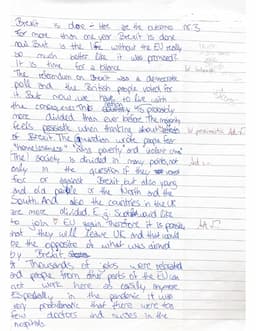 Brexit is done - Here are the outcomes nr.3
For more than one year Brexit is done
now. But is the life without the EU really
so much better like it was promised?
It is time for a balance.
The referendum on Brexit was a democratic
poll and the British people voted for
it. But now we have to live with
the consequences. This country is probably
more divided than ever before. The majority
feels pessimistic when thinking about
of Brexit. The Guardian wrote people fear
"homelessness", rising poverty and violent crime
The society is divided in many points, not
only in the question if they voted
for or against Brexit but also young
and old people or the North and the
South. And also the countries in the UK
are more divided. E.g. Scotland would like
to join EU again. Therefore it is possible
that they will leave UK and that would
be the opposite of what was aimed
by Brexit
Thousands of jobs were relocated
and people from other parts of the EU can
not work here as easily anymore
Especially in the pandemic it was
very problematic that there were too
few doctors and nurses in the
hospitals